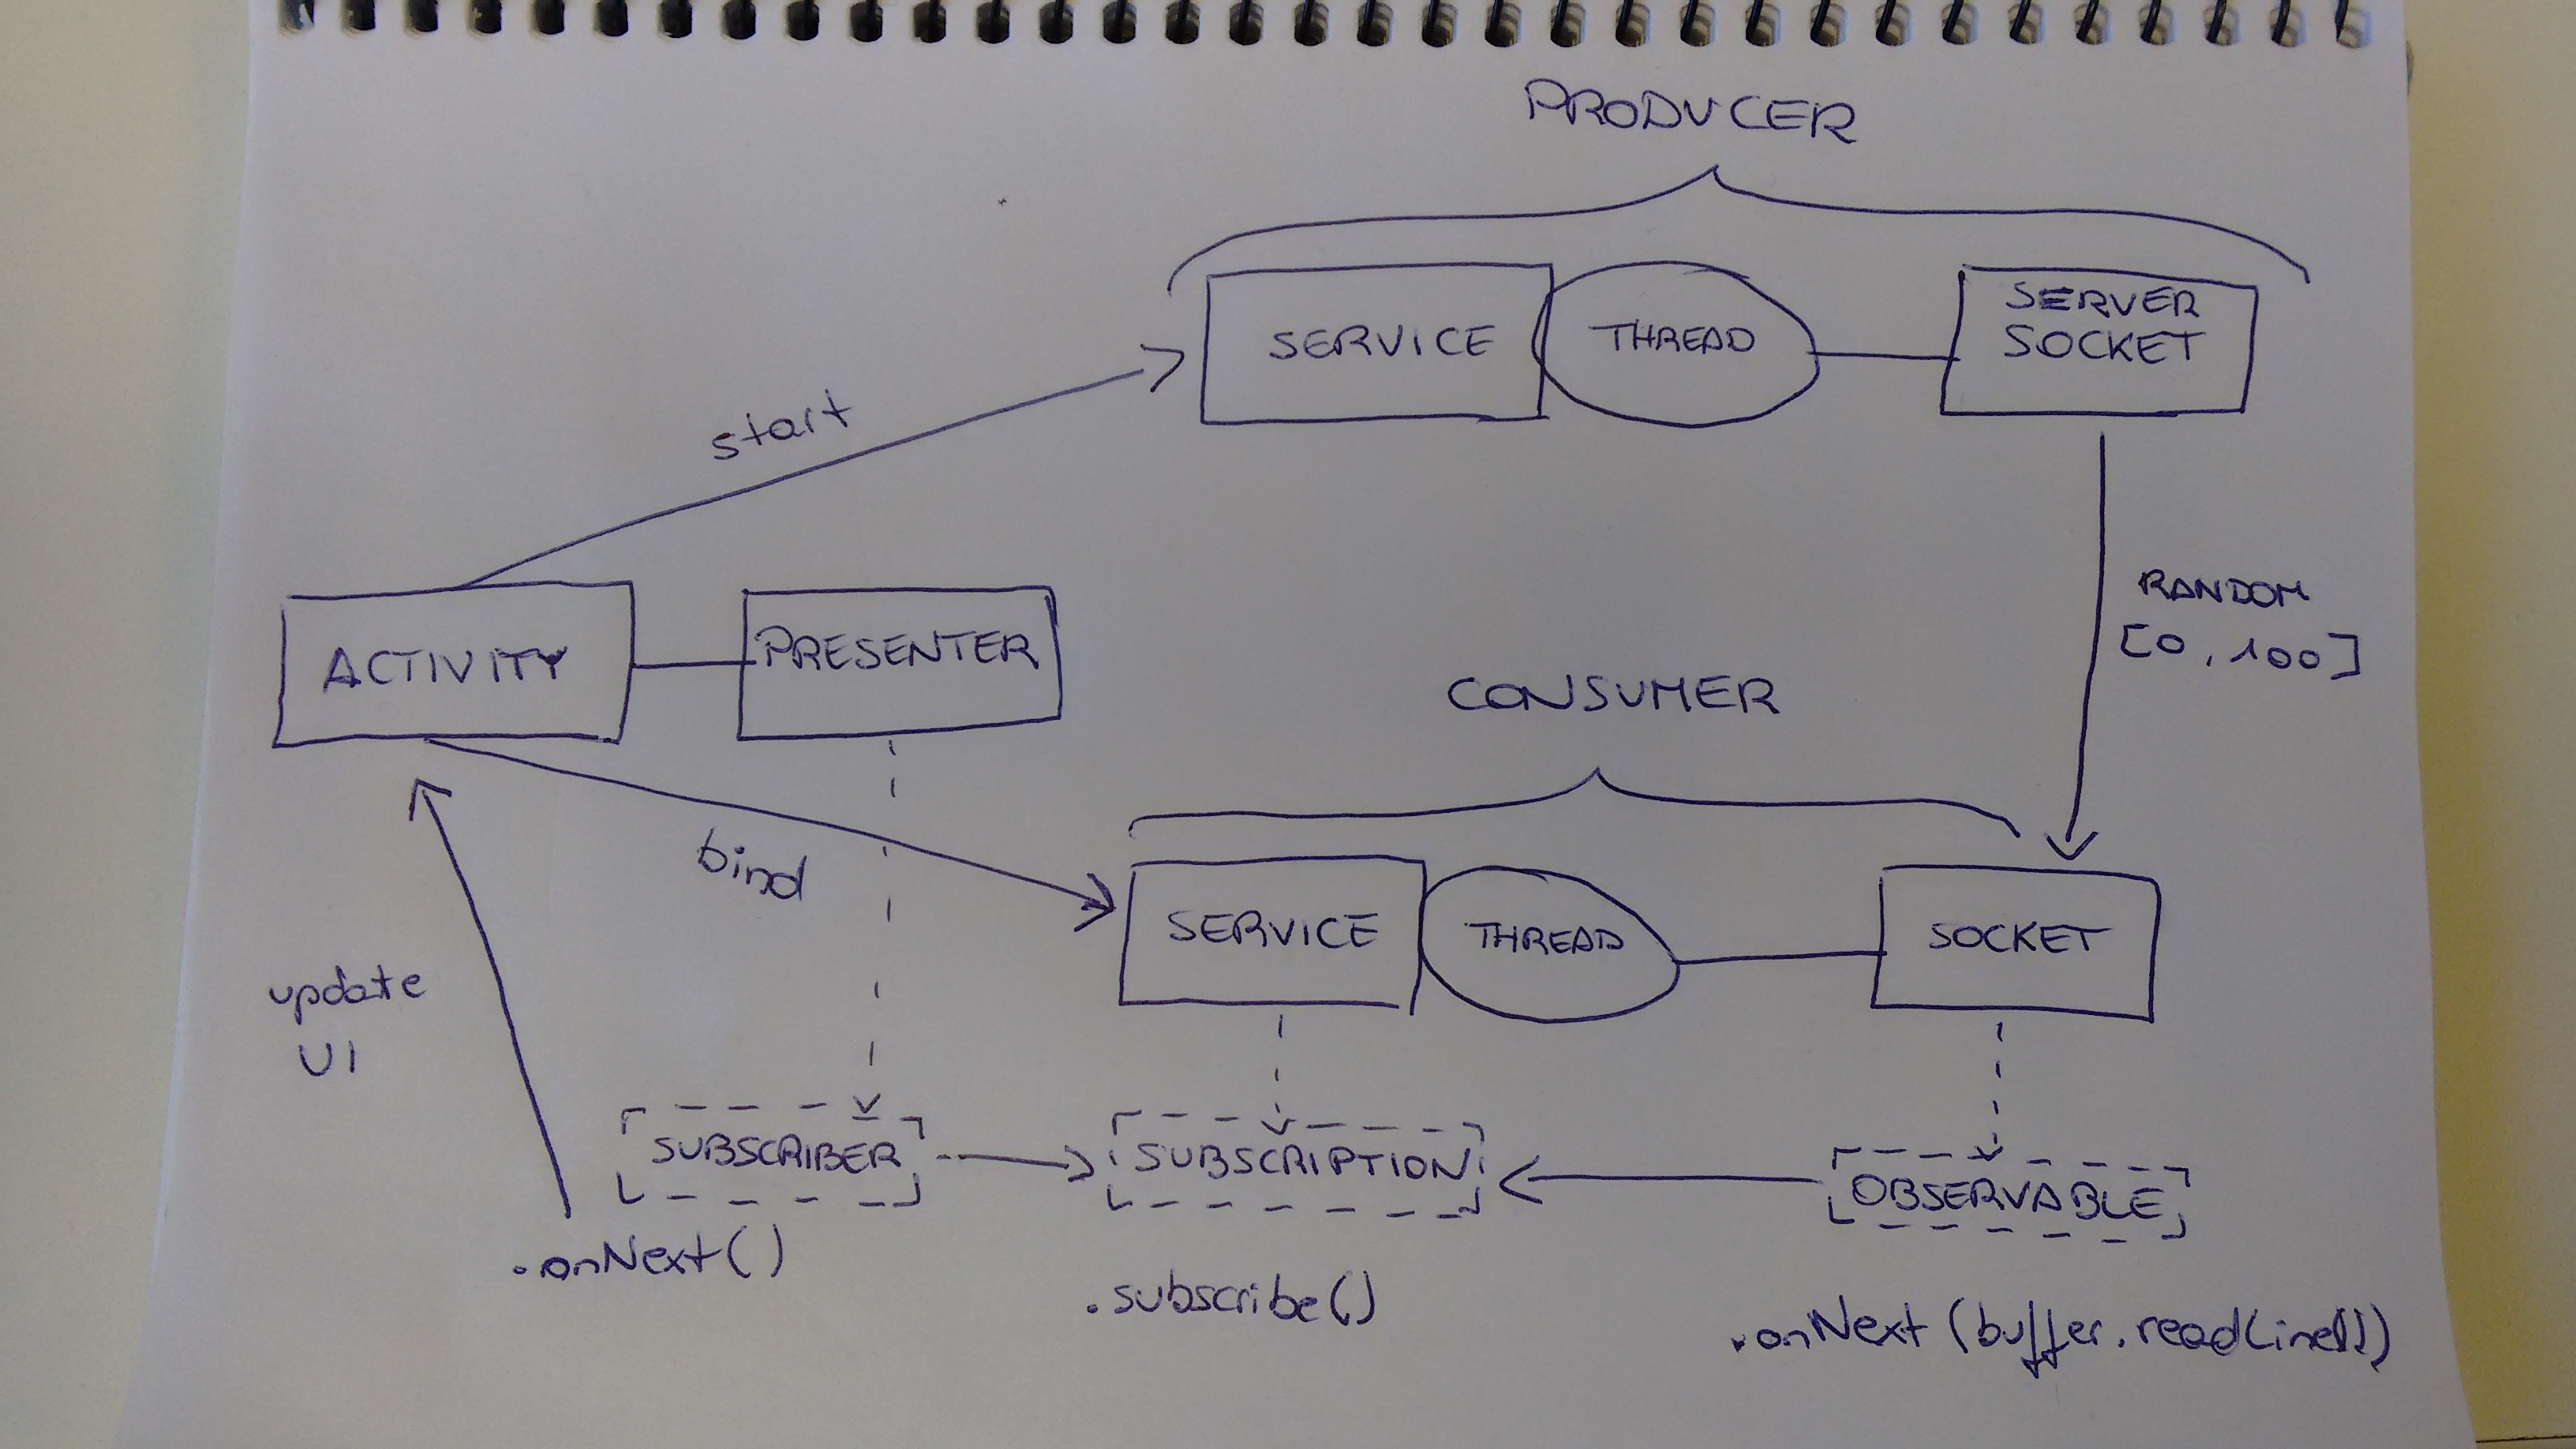 PRODUCER
SERVICE
THREAD
SERVER
SOCKET
start
RANDOM
[0, 100]
ACTIVITY
PRESENTER
CONSUMER
bind
SERVICE
THREAD
SOCKET
update
UI
SUBSCRIBER
SUBSCRIPTION
OBSERVABLE
.onNext()
.subscribe()
.onNext(buffer.readLine())